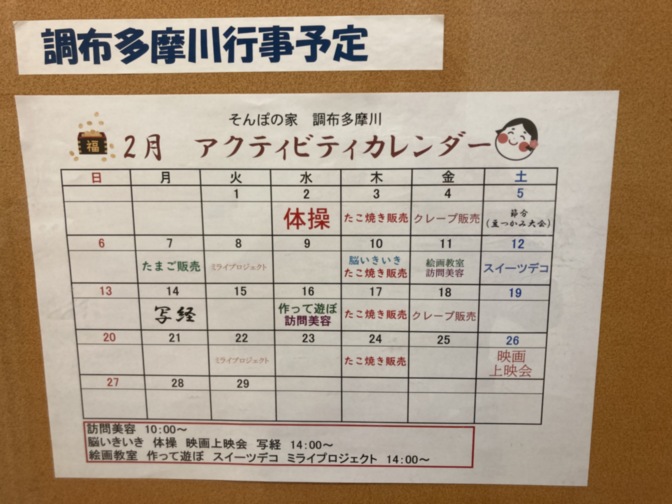 調布多摩川行事予定
そんぽの家 調布多摩川
福
2月 アクティビティカレンダー
日 月 火 水 木 金 土
1 2 3 4 5
体操 たこ焼き販売 クレープ販売 節分
(豆つかみ大会)
6 7 8 9 10 11 12
たまご販売 ミライプロジェクト 脳いきいき 絵画教室 スイーツデコ
たこ焼き販売 訪問美容
13 14 15 16 17 18 19
写経 作って遊ぼ たこ焼き販売 クレープ販売
訪問美容
20 21 22 23 24 25 26
ミライプロジェクト たこ焼き販売 映画
上映会
27 28 29
訪問美容 10:00~
脳いきいき 体操 映画上映会 写経 14:00~
絵画教室 作って遊ぼ スイーツデコ ミライプロジェクト 14:00~